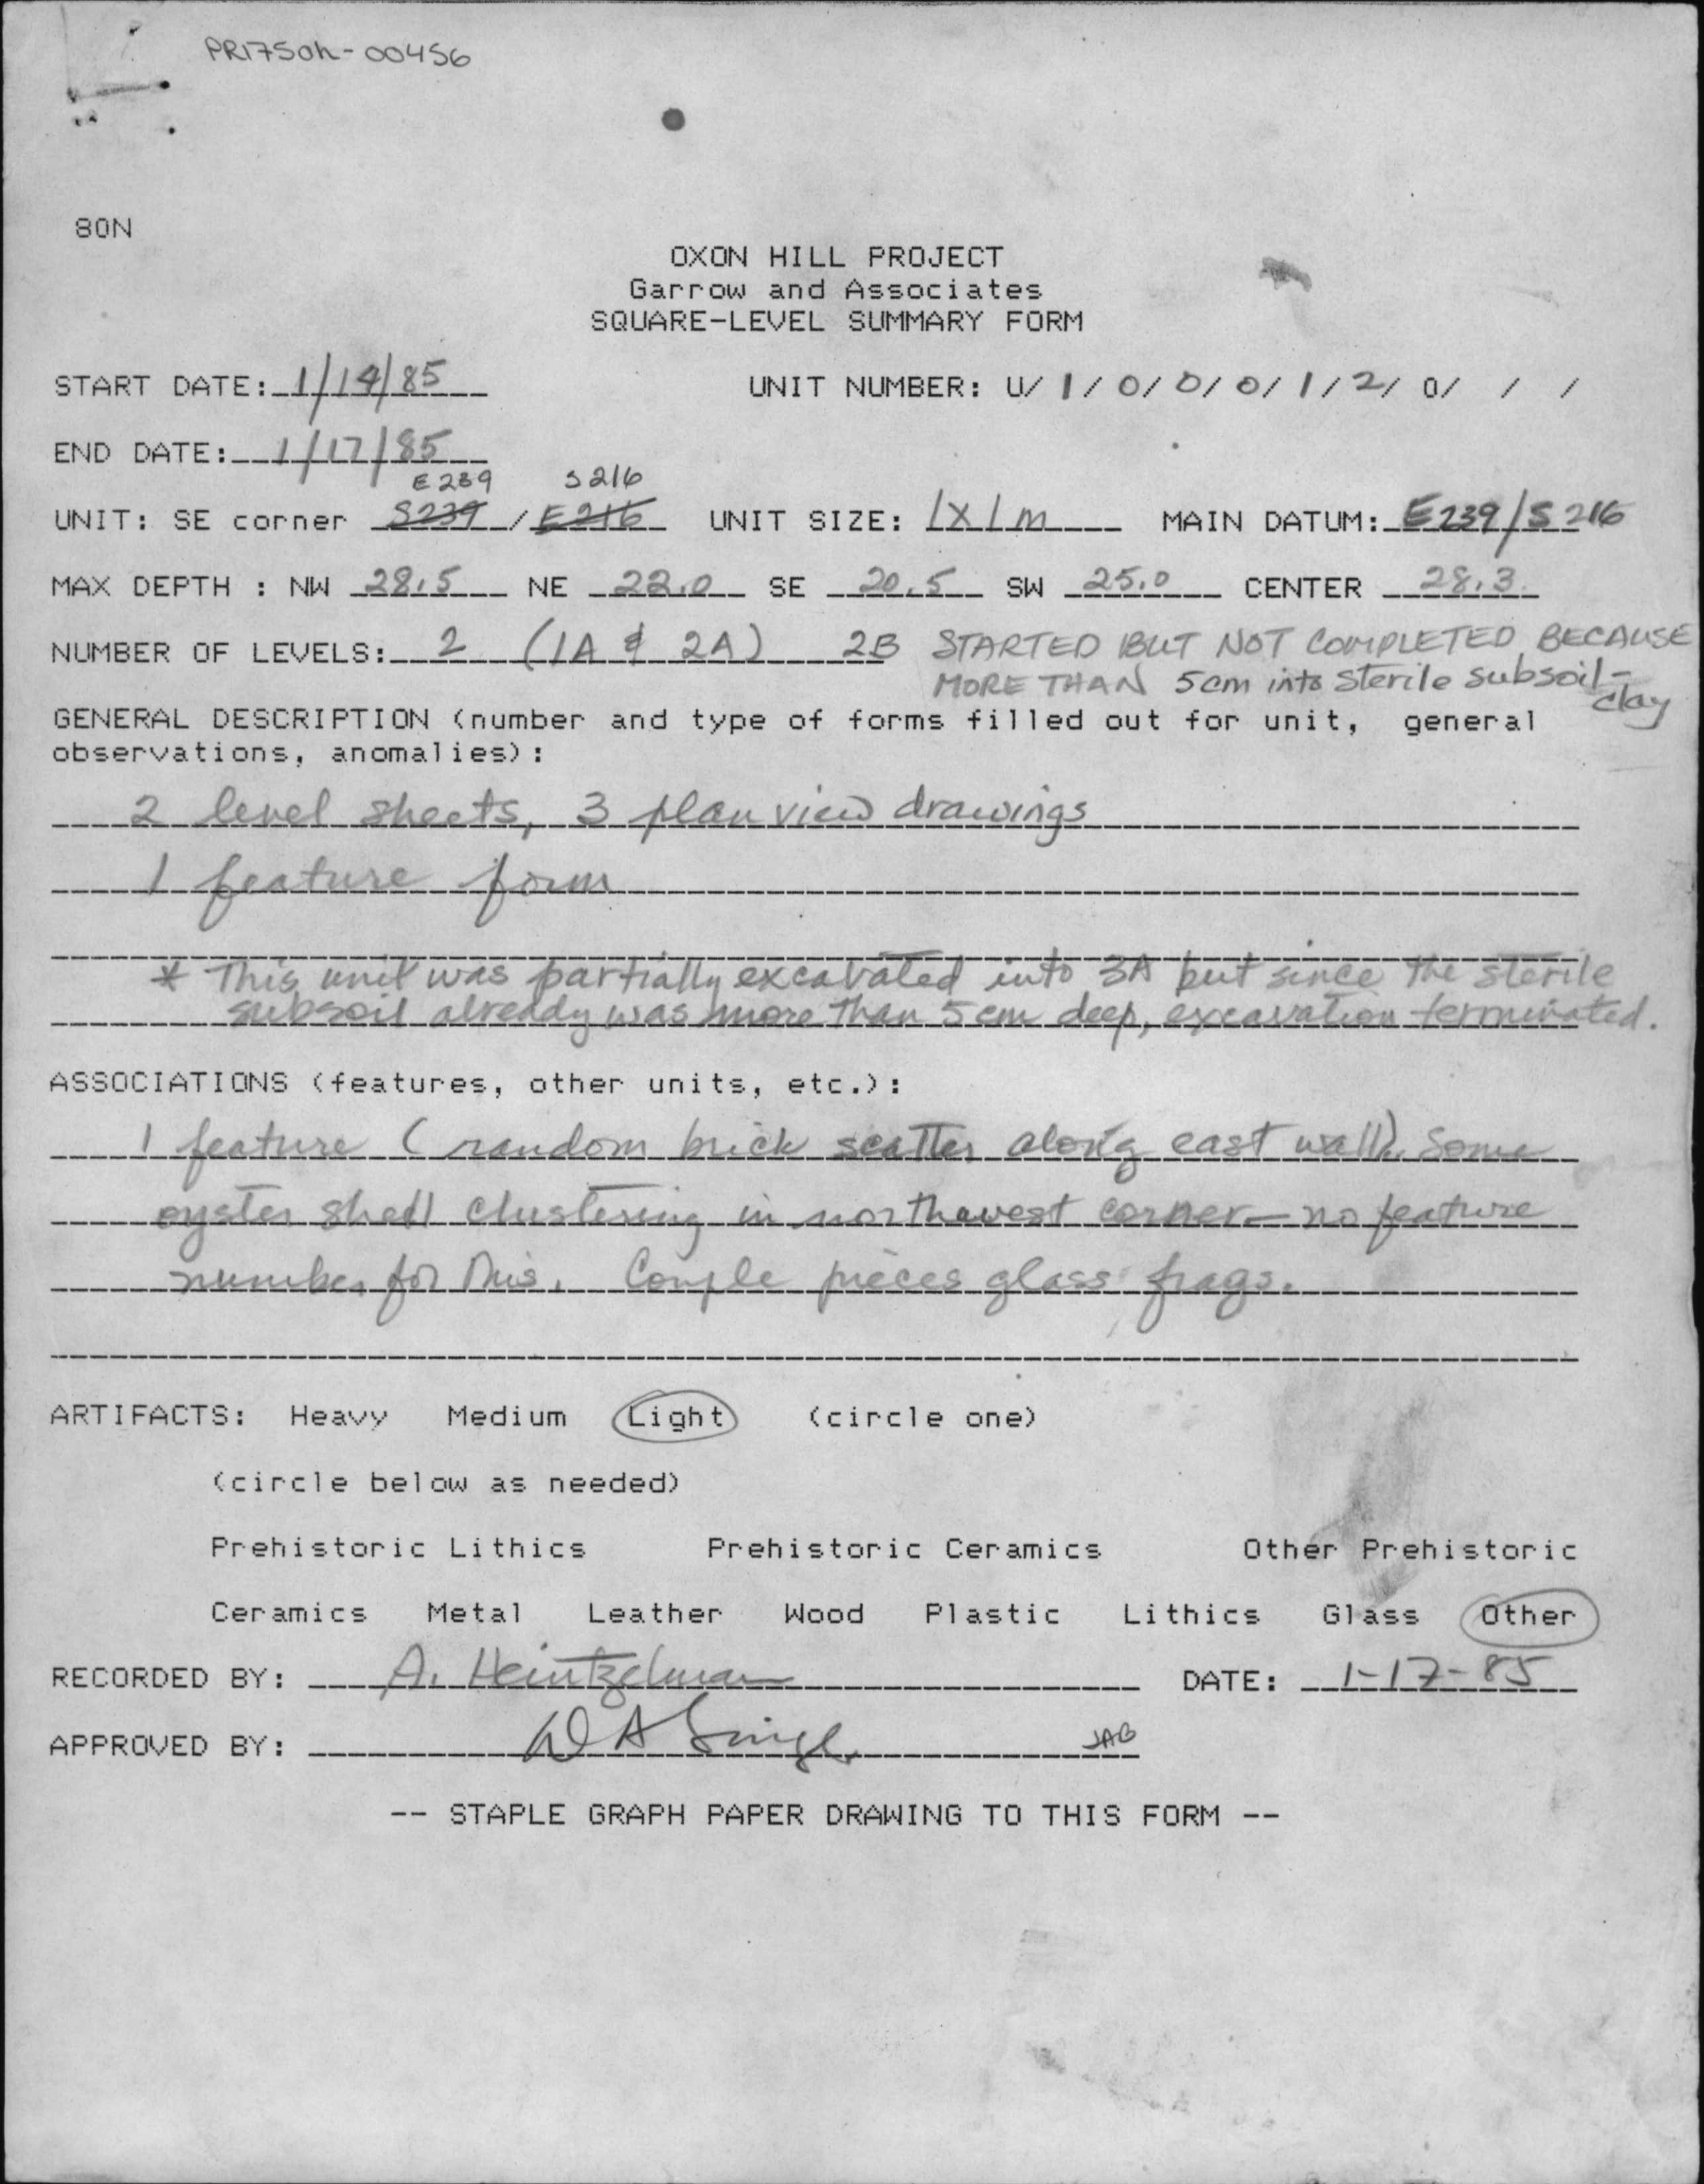 PR175Oh-00456
80N
OXON HILL PROJECT
Garrow and Associates
SQUARE-LEVEL SUMMARY FORM
START DATE: 1/14/85 UNIT NUMBER: U/ 1 / 0 / 0 / 0 / 1 / 2 / 0/ / /
END DATE: 1/17/85
E239 S216
UNIT: SE corner S239 / E216 UNIT SIZE: 1x1m MAIN DATUM: E239/S216
MAX DEPTH : NW 28.5 NE 22.0 SE 20.5 SW 25.0 CENTER 28.3
NUMBER OF LEVELS: 2 (1A & 2A) 2B STARTED BUT NOT COMPLETED BECAUSE
MORE THAN 5cm into sterile subsoil-
clay
GENERAL DESCRIPTION (number and type of forms filled out for unit, general
observations, anomalies):
2 level sheets, 3 plan view drawings
1 feature form
* This unit was partially excavated into 3A but since the sterile
subsoil already was more than 5cm deep, excavation terminated.
ASSOCIATIONS (features, other units, etc.):
1 feature (random brick scatter along east wall). Some
oyster shell clustering in northwest corner - no feature
number for this. Couple pieces glass frags.
ARTIFACTS: Heavy Medium Light (circle one)
(circle below as needed)
Prehistoric Lithics Prehistoric Ceramics Other Prehistoric
Ceramics Metal Leather Wood Plastic Lithics Glass Other
RECORDED BY: A. Heintzelman DATE: 1-17-85
APPROVED BY: W A JAB
-- STAPLE GRAPH PAPER DRAWING TO THIS FORM --